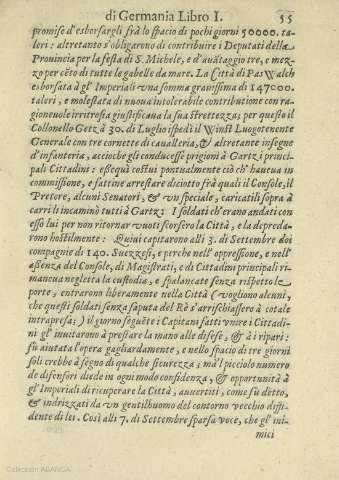 di Germania Libro I. 55
promise d'esborsargli frà lo spacio di pochi giorni 50000. ta-
leri: altretanto s'obligarono di contribuire i Deputati della
Provincia per la festa di S. Michele, e d'auãtaggio tre, e mez-
zo per cẽto di tutte le gabelle da mare. La Città di PasWalch
esborsata à gl'Imperiali vna somma grauissima di 147000.
taleri, e molestata di nuoua intolerabile contributione con ra-
gioneuole irritrosia giustificana la sua strettezza; per questo il
Collonello Getz à 30. di Luglio ispedì il Winst Luogotenente
Generale con tre cornette di caualleria, & altretante insegne
d'infanteria, accioche gli conducesse prigioni à Gartz i princi-
pali Cittadini: essequì costui pontualmente ciò ch'haueua in
commissione, e fattine arrestare diciotto frà quali il Console, il
Pretore, alcuni Senatori, & vn speciale, caricatili sopra à
carri li incaminò tutti à Gartz: I soldati ch'erano andati con
esso lui per non ritornar vuoti scorsero la Città, e la depreda-
rono hostilmente: Quiui capitarono alli 3. di Settembre doi
compagnie di 140. Suezzesi, e perche nell'oppressione, e nell'
assenza del Console, di Magistrati, e di Cittadini principali ri-
maneua neglecta la custodia, e spalancate senza rispetto le
porte, entrarono liberamente nella Città (vogliono alcuni,
che questi soldati senza saputa del Rè s'arrischiassero à cotale
intrapresa;) il giorno seguẽte i Capitani fatti vnire i Cittadi-
ni gl'inuitarono à prestare la mano alle difese, & à i ripari:
fù aiutata l'opera gagliardamente, e nello spacio di tre giorni
soli crebbe à segno di qualche sicurezza; mà'l picciolo numero
de difensori diede in ogni modo confidenza, & opportunità à
gl'Imperiali di ricuperare la Città, auuertiti, come fù detto,
& indrizzati da vn gentilhuomo del contorno vecchio diffi-
dente di lei. Così alli 7. di Settembre sparsa voce, che gl'ini-
mici
Colección ABANCA